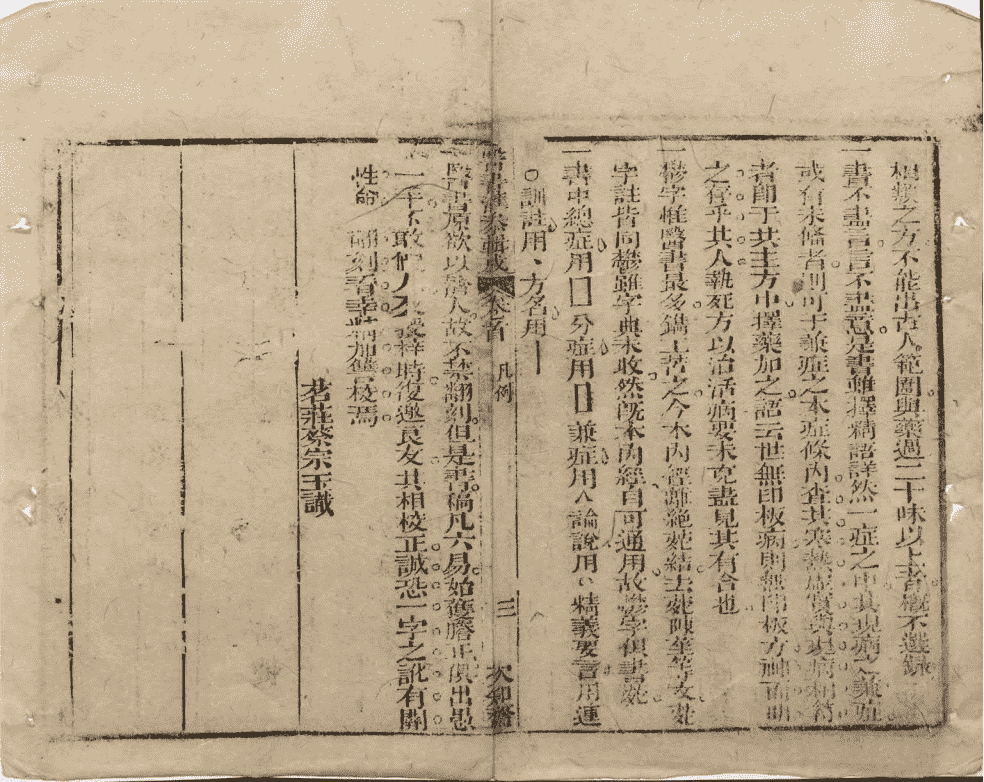 相類之方不能出古人範圍與藥過二十味以上者概不選錄
一書不盡言言不盡意是書雖擇精語詳然一症之中其現病之兼症
或有未備者則可于兼症之本症條內查其寒熱虛實與現病相符
者即于其主方中擇藥加之語云世無印板病則無印板方神而明
之存乎其人執死方以治活病要未克盡見其有合也
一鬱字惟醫書最多鐫工苦之今本內經雖絕菀結去菀陳莝等文菀
字註皆同鬱雖字典未收然既本內經自可通用故鬱字俱書菀
一書中總症用 分症用 兼症用 論說用 精義要言用連
○訓註用、方名用
醫書滙參輯成 卷首 凡例 三 次和齋
一醫書原欲以濟人故不禁翻刻但是書稿凡六易始獲謄正俱出愚
一手不敢 梓時復邀良友共相校正誠恐一字之訛有關
性命 翻刻者幸精加讐校焉
茗莊蔡宗玉識